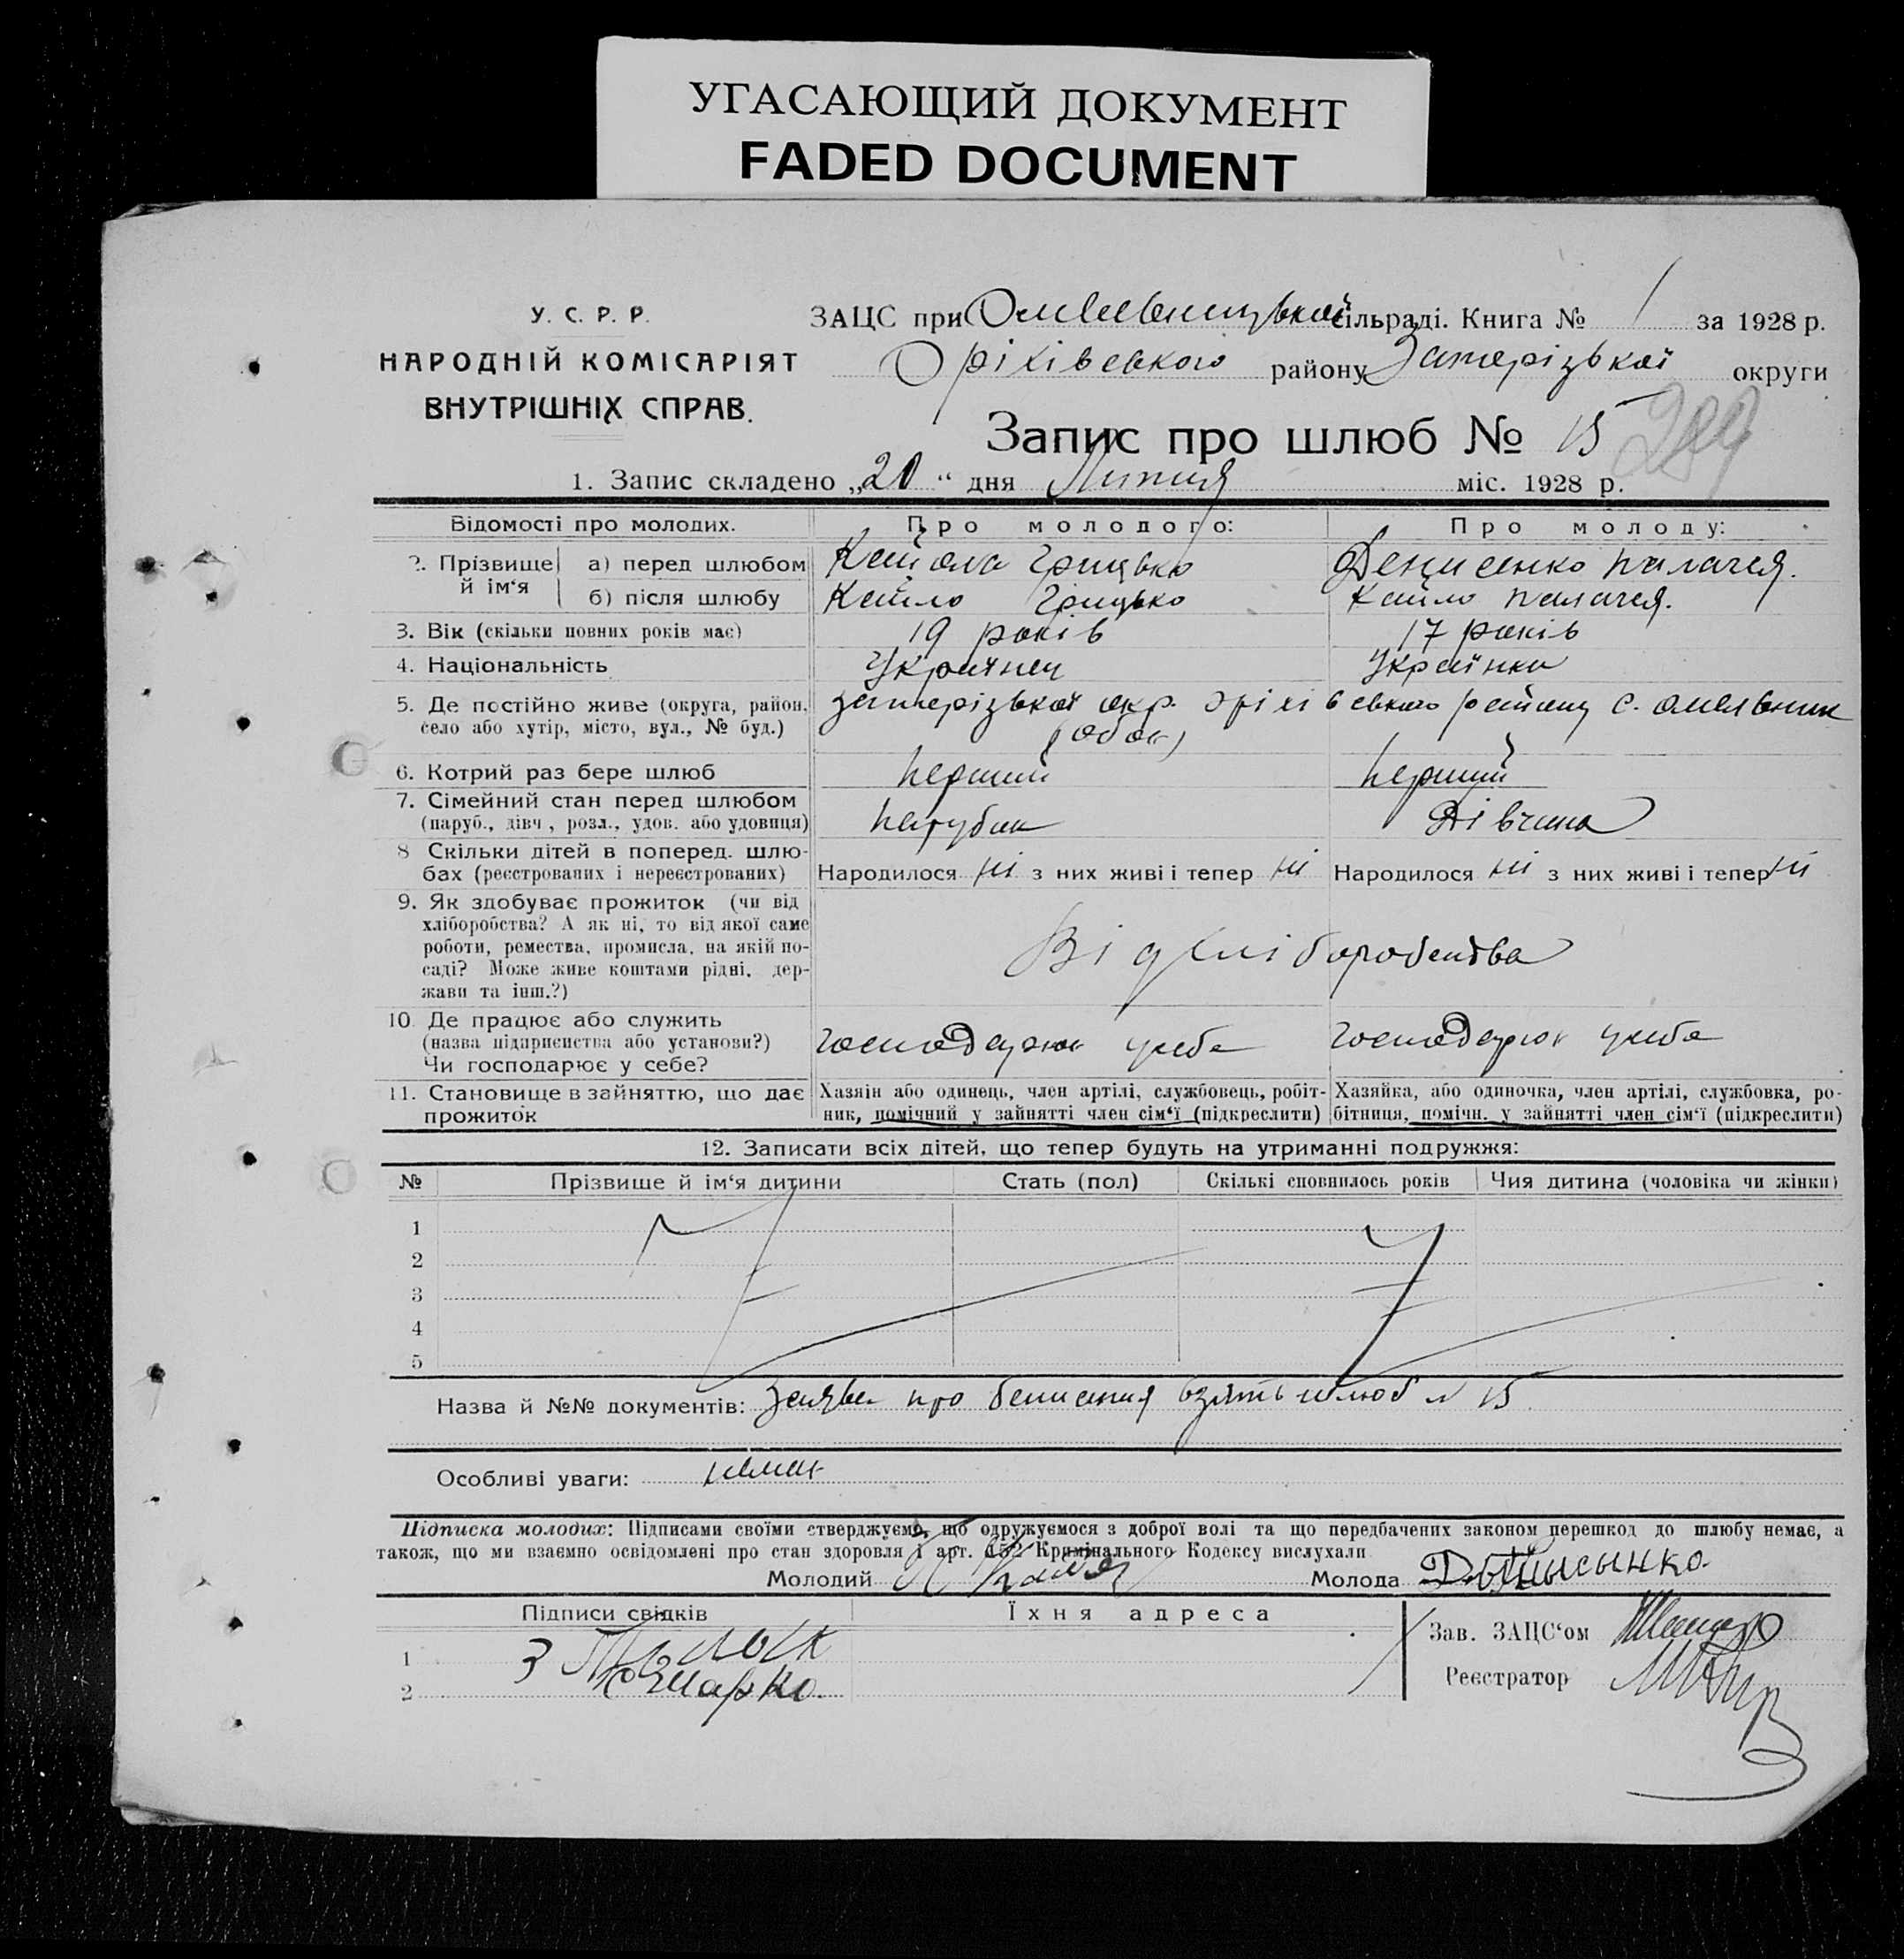 УГАСАЮЩИЙ ДОКУМЕНТ
FADED DOCUMENT
У. С. Р. Р.
НАРОДНІЙ КОМІСАРІЯТ
ВНУТРІШНІХ СПРАВ.
ЗАЦС при Омельницькій сільраді. Книга № 1 за 1928 р.
Оріхівського району Запорізької округи
Запис про шлюб № 15
289
1. Запис складено „20“ дня Липня міс. 1928 р.
Відомості про молодих. Про молодого: Про молоду:
2. Прізвище й ім‘я а) перед шлюбом Грицько Денисенко Палагея.
б) після шлюбу Кайло Грицько Кайло Палагея.
3. Вік (скільки повних років має) 19 років 17 років
4. Національність Українец Українка
5. Де постійно живе (округа, район, село або хутір, місто, вул., № буд.) Запорізької окр. Оріхівського району с. Омельник
(обоє)
6. Котрий раз бере шлюб перший перший
7. Сімейний стан перед шлюбом (паруб., дівч., розл., удов. або удовиця) парубок Дівчина
8 Скільки дітей в поперед. шлюбах (реєстрованих і нереєстрованих) Народилося ні з них живі і тепер ні Народилося ні з них живі і тепер ні
9. Як здобуває прожиток (чи від
хліборобства? А як ні, то від якої саме
роботи, ремества, промисла, на якій по-
саді? Може живе коштами рідні, дер-
жави та інш.?)
Від хліборобства
10. Де працює або служить
(назва підприєнства або установи?)
Чи господарює у себе?
господарює у себе господарює у себе
11. Становище в зайняттю, що дає
прожиток
Хазяін або одинець, член артілі, службовець, робіт-
ник, помічний у зайнятті член сім‘ї (підкреслити)
Хазяйка, або одиночка, член артілі, службовка, ро-
бітниця, помічн. у зайнятті член сім‘ї (підкреслити)
12. Записати всіх дітей, що тепер будуть на утриманні подружжя:
№ Прізвище й ім‘я дитини Стать (пол) Скількі сповнилось років Чия дитина (чоловіка чи жінки)
1
2
3
4
5
Назва й №№ документів: Заява про бажання взять шлюб № 15
Особливі уваги: немає
Підписка молодих: Підписами своїми стверджуємо, що одружуємося з доброї волі та що передбачених законом перешкод до шлюбу немає, а
також, що ми взаємно освідомлені про стан здоровля і арт. 152 Кримінального Кодексу вислухали
Молодий Молода Дынысынко
Підписи свідків Їхня адреса
Зав. ЗАЦС‘ом
1 З
2
Реєстратор